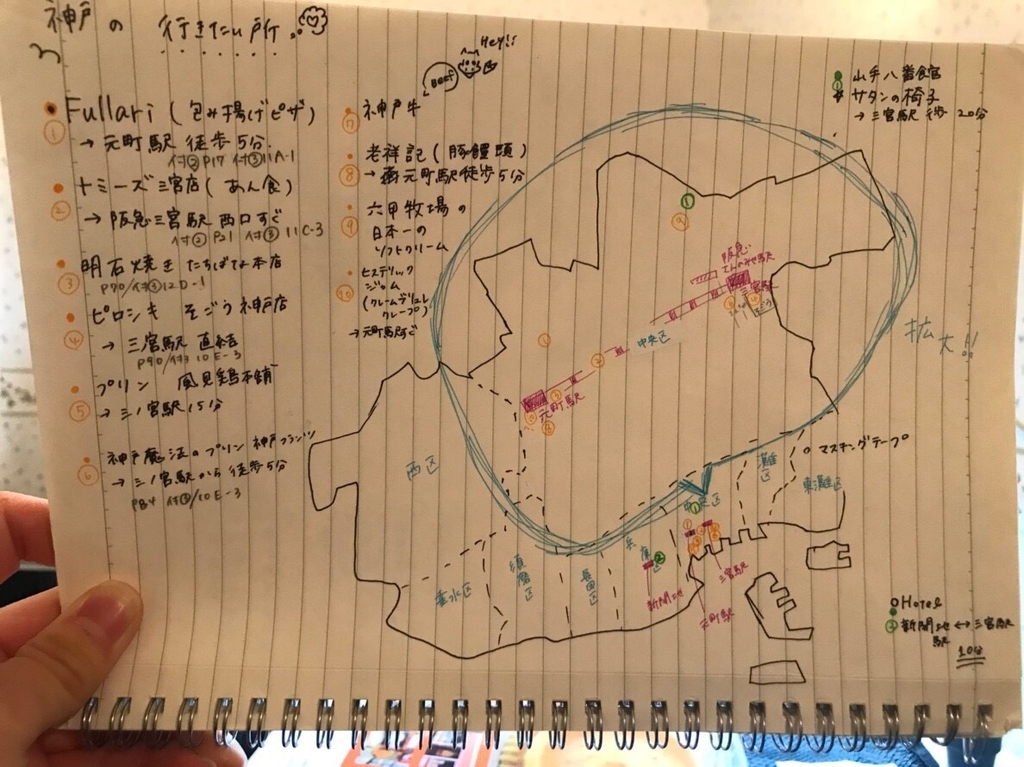 神戸の行きたい所
Fullari (包み揚げピザ)
①
→ 元町駅 徒歩5分
付② P17 付③11A-1
トミーズ三宮店 (あん食)
②
→ 阪急三宮駅 西口すぐ
付② P21 付③ 11C-3
明石焼き たちばな本店
③
P70/付③12D-1
ピロシキ そごう神戸店
④
→ 三宮駅 直結
P90/付③ 10E-3
プリン 風見鶏本舗
⑤
→ 三ノ宮駅 15分
神戸魔法のプリン 神戸フランツ
⑥
→ 三ノ宮駅から 徒歩5分
P84 付③/10E-3
Hey!!
Beef
神戸牛
⑦
老祥記 (豚饅頭)
⑧
→ 元町駅徒歩5分
六甲牧場の
⑨
日本一の
ソフトクリーム
ヒステリック
⑩
ジャム
(クレームブリュレ
クレープ)
→ 元町駅すぐ
① 山手八番館
サタンの椅子
→ 三宮駅 徒歩 20分
①
⑨
阪急
三宮駅
中央区
元町駅
拡大!!
西区
垂水区
須磨区
長田区
兵庫区
中央区
灘区
東灘区
マスキングテープ
新開地
元町駅
三宮駅
Hotel
② 新開地 ↔ 三宮駅
駅
10分